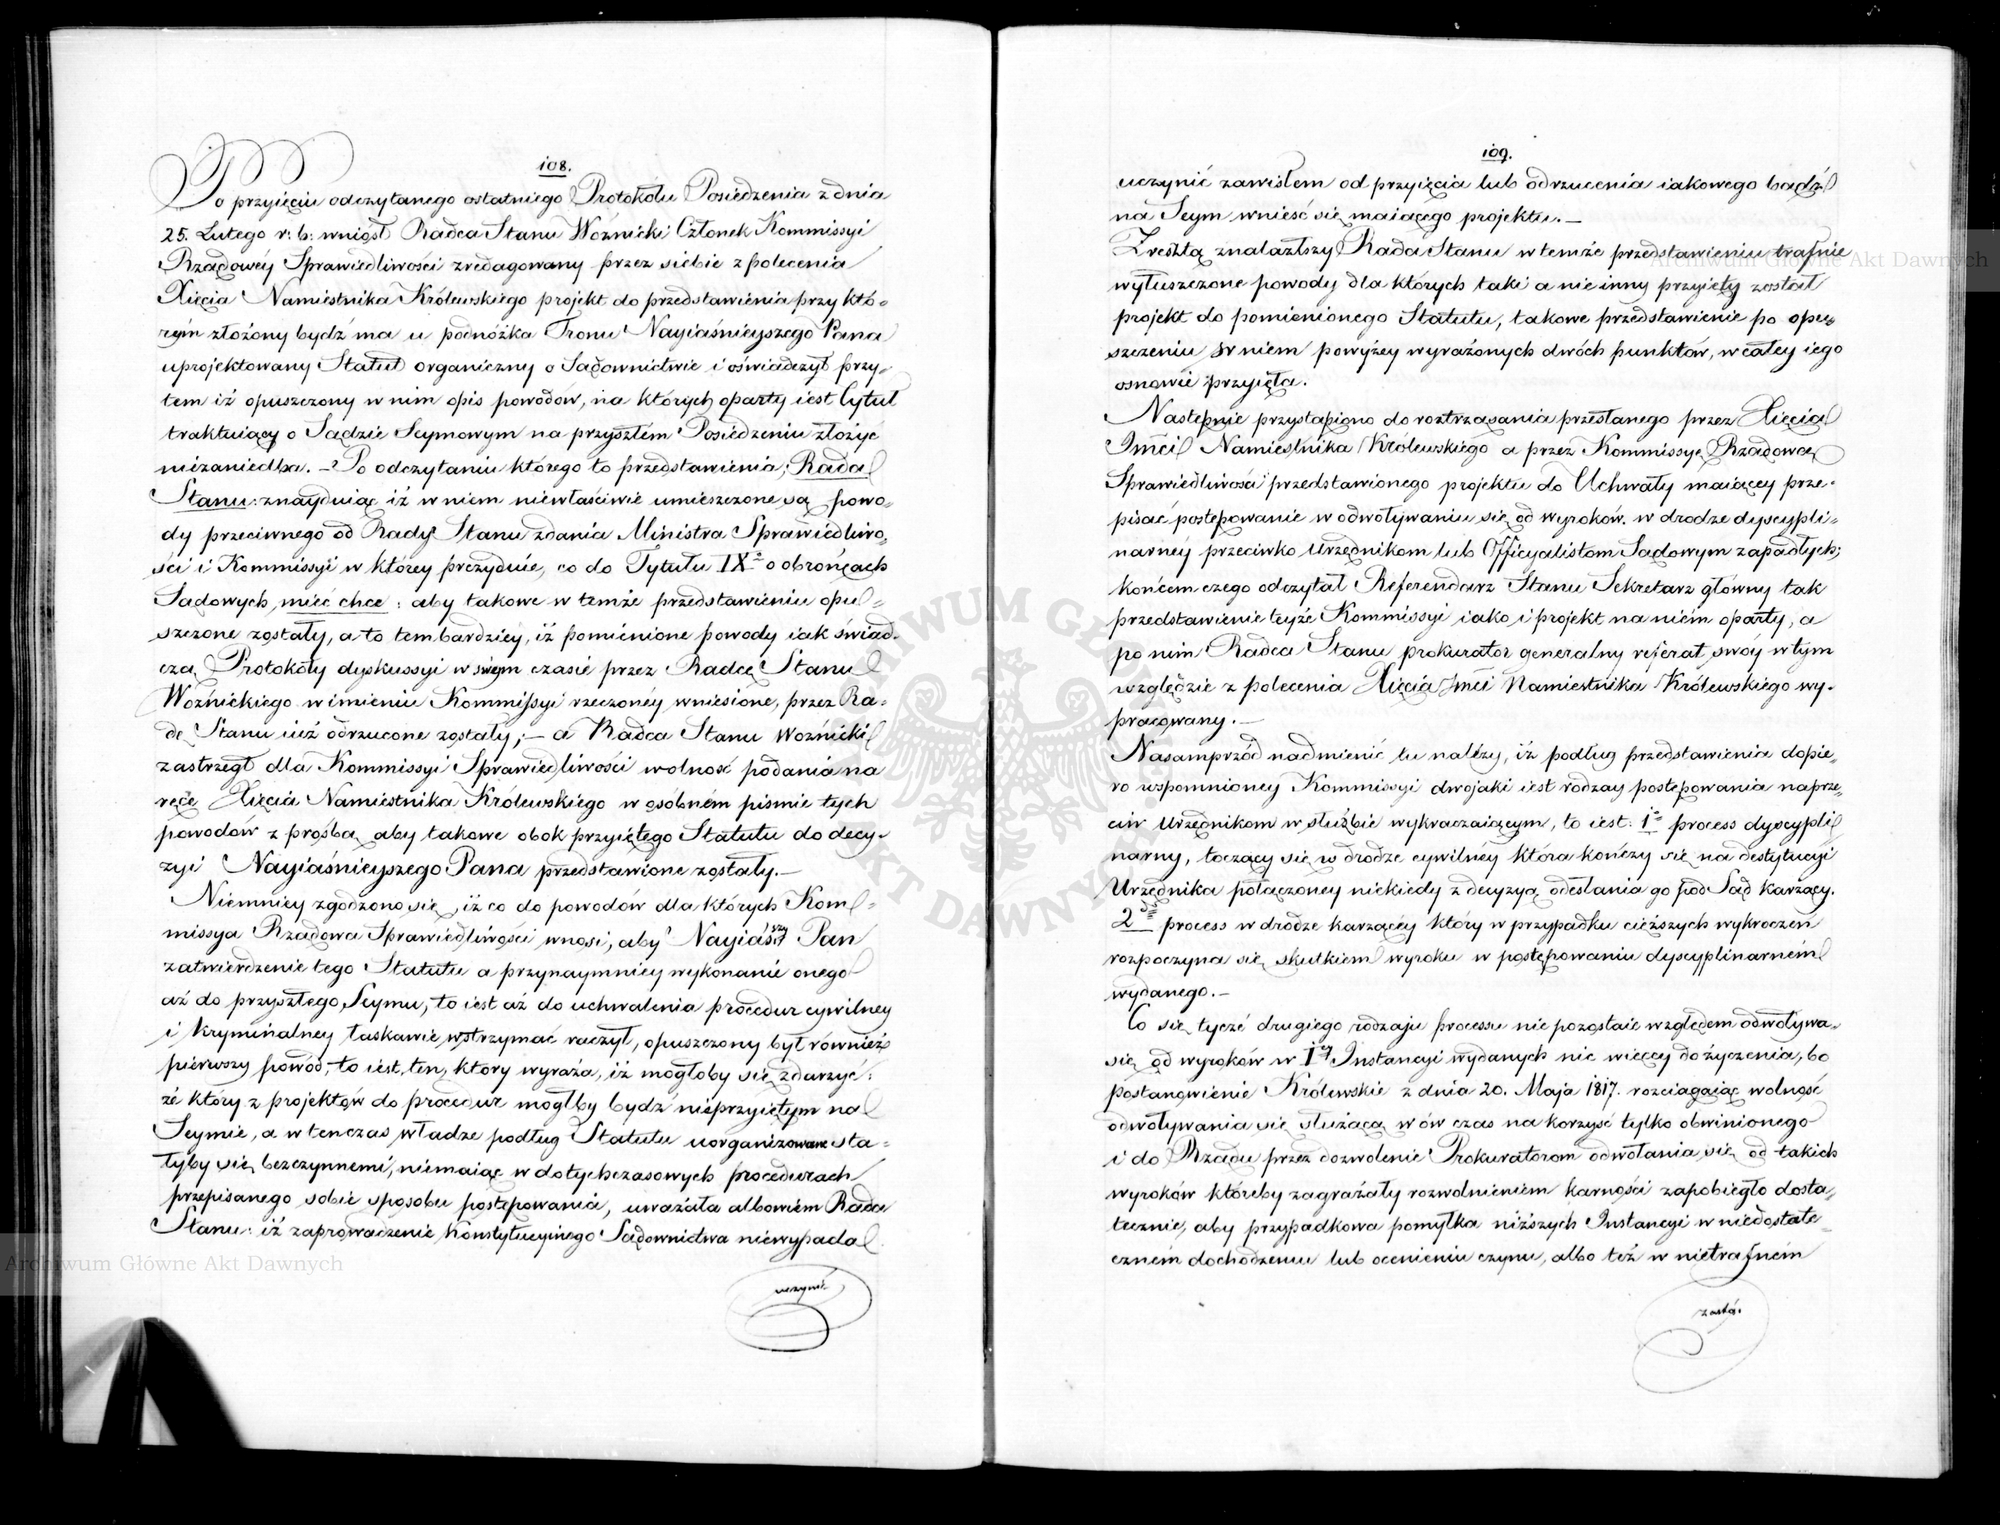 108.
Po przyięciu odczytanego ostatniego Protokółu Posiedzenia z dnia
25. Lutego r: b: wniosł Radca Stanu Woźnicki Członek Kommissyi
Rządowéy Sprawiedliwości zredagowany przez siebie z polecenia
Xięcia Namiestnika Królewskiego projekt do przedstawienia przy któ-
rym złożony bydź ma u podnóżka Tronu Nayiaśnieyszego Pana
uprojektowany Statut organiczny o Sądownictwie i oświadczył przy-
tem iż opuszczony w nim opis powodów, na których oparty iest Tytuł
traktuiący o Sądzie Seymowym na przyszłém Posiedzeniu złożyć
niezaniedba. – Po odczytaniu którego to przedstawienia; Rada
Stanu: znayduiąc iż w niem niewłaściwie umieszczone są powo-
dy przeciwnego od Rady Stanu zdania Ministra Sprawiedliwo-
ści i Kommissyi w którey prezyduie, co do Tytułu IXo o obrońcach
Sądowych, mieć chce: aby takowe w temże przedstawieniu opu-
szczone zostały, a to tembardziéy, iż pomienione powody iak świad-
czą Protokóły dyskussyi w swym czasie przez Radcę Stanu
Woźnickiego w imieniu Kommissyi rzeczonéy wniesione, przez Ra-
dę Stanu iuż odrzucone zostały; – a Radca Stanu Woźnicki
zastrzegł dla Kommissyi Sprawiedliwości wolność podania na
ręce Xięcia Namiestnika Królewskiego w osobném piśmie tych
powodów z prośbą aby takowe obok przyiętego Statutu do decy-
zyi Nayiaśnieyszego Pana przedstawione zostały. –
Niemniey zgodzono się, iż co do powodów dla których Kom-
missya Rządowa Sprawiedliwości wnosi, aby Nayiaśszy Pan
zatwierdzenie tego Statutu a przynaymniey wykonanie onego
aż do przyszłego Seymu, to iest aż do uchwalenia procedur cywilney
i kryminalney łaskawie wstrzymać raczył, opuszczony był również
pierwszy powód, to iest, ten, który wyraża, iż mogłoby się zdarzyć:
że który z projektów do procedur mógłby bydź nieprzyiętym na
Seymie, a w tenczas władze podług Statutu uorganizowane sta-
łyby się bezczynnemi, niemaiąc w dotychczasowych procedurach
przepisanego sobie sposobu postępowania, uważała albowiem Rada
Stanu: iż zaprowadzenie Konstytucyinego Sądownictwa niewypada
uczynić
109.
uczynić zawisłem od przyięcia lub odrzucenia iakowego bądź
na Seym wnieść się maiącego projektu. –
Zresztą znalazłszy Rada Stanu w temże przedstawieniu trafnie
wyłuszczone powody dla których taki a nie inny przyięty został
projekt do pomienionego Statutu, takowe przedstawienie po opu-
szczeniu w niem powyżey wyrażonych dwóch punktów, w całey iego
osnowie przyięła.
Następnie przystąpiono do roztrząsania przesłanego przez Xięcia
Jmci Namiestnika Królewskiego a przez Kommissyę Rządową
Sprawiedliwości przedstawionego projektu do Uchwały maiącey prze-
pisać postępowanie w odwoływaniu się od wyroków w drodze dyscypli-
narnéy przeciwko Urzędnikom lub Officyalistom Sądowym zapadłych;
końcem czego odczytał Referendarz Stanu Sekretarz główny tak
przedstawienie teyże Kommissyi iako i projekt na niém oparty, a
po nim Radca Stanu prokurator generalny referat swóy w tym
względzie z polecenia Xięcia Jmci Namiestnika Królewskiego wy-
pracowany. –
Nasamprzód nadmienić tu należy, iż podług przedstawienia dopie-
ro wspomnioney Kommissyi dwojaki iest rodzay postępowania naprze-
ciw Urzędnikom w służbie wykraczaiącym, to iest: 1o process dyscypli
narny, toczący się w drodze cywilnéy która kończy się na destytucyi
Urzędnika połączoney niekiedy z decyzyą odesłania go pod Sąd karzący.
2do process w drodze karzącéy który w przypadku cięższych wykroczeń
rozpoczyna się skutkiem wyroku w postępowaniu dyscyplinarném
wydanego. –
Co się tycze drugiego rodzaju processu nie pozostaie względem odwoływa-
się od wyroków w Iey Instancyi wydanych nic więcey do życzenia, bo
Postanowienie Królewskie z dnia 20. Maja 1817. rozciągaiąc wolność
odwoływania się służącą w ów czas na korzyść tylko obwinionego
i do Rządu przez dozwolenie Prokuratorom odwołania się od takich
wyroków któreby zagrażały rozwolnieniem karności zapobiegło dosta-
tecznie, aby przypadkowa pomyłka niższych Instancyi w niedostate-
czném dochodzeniu lub ocenieniu czynu, albo też w nietrafném
zasto.
Archiwum Główne Akt Dawnych
Archiwum Główne Akt Dawnych
ARCHIWUM GŁÓWNE AKT DAWNYCH